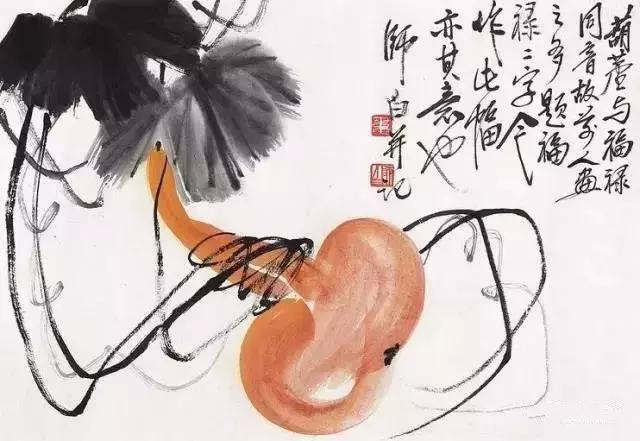 葫蘆与福禄
同音故前人画
之多題福
禄二字今
作此幅
亦其意也
師白并记